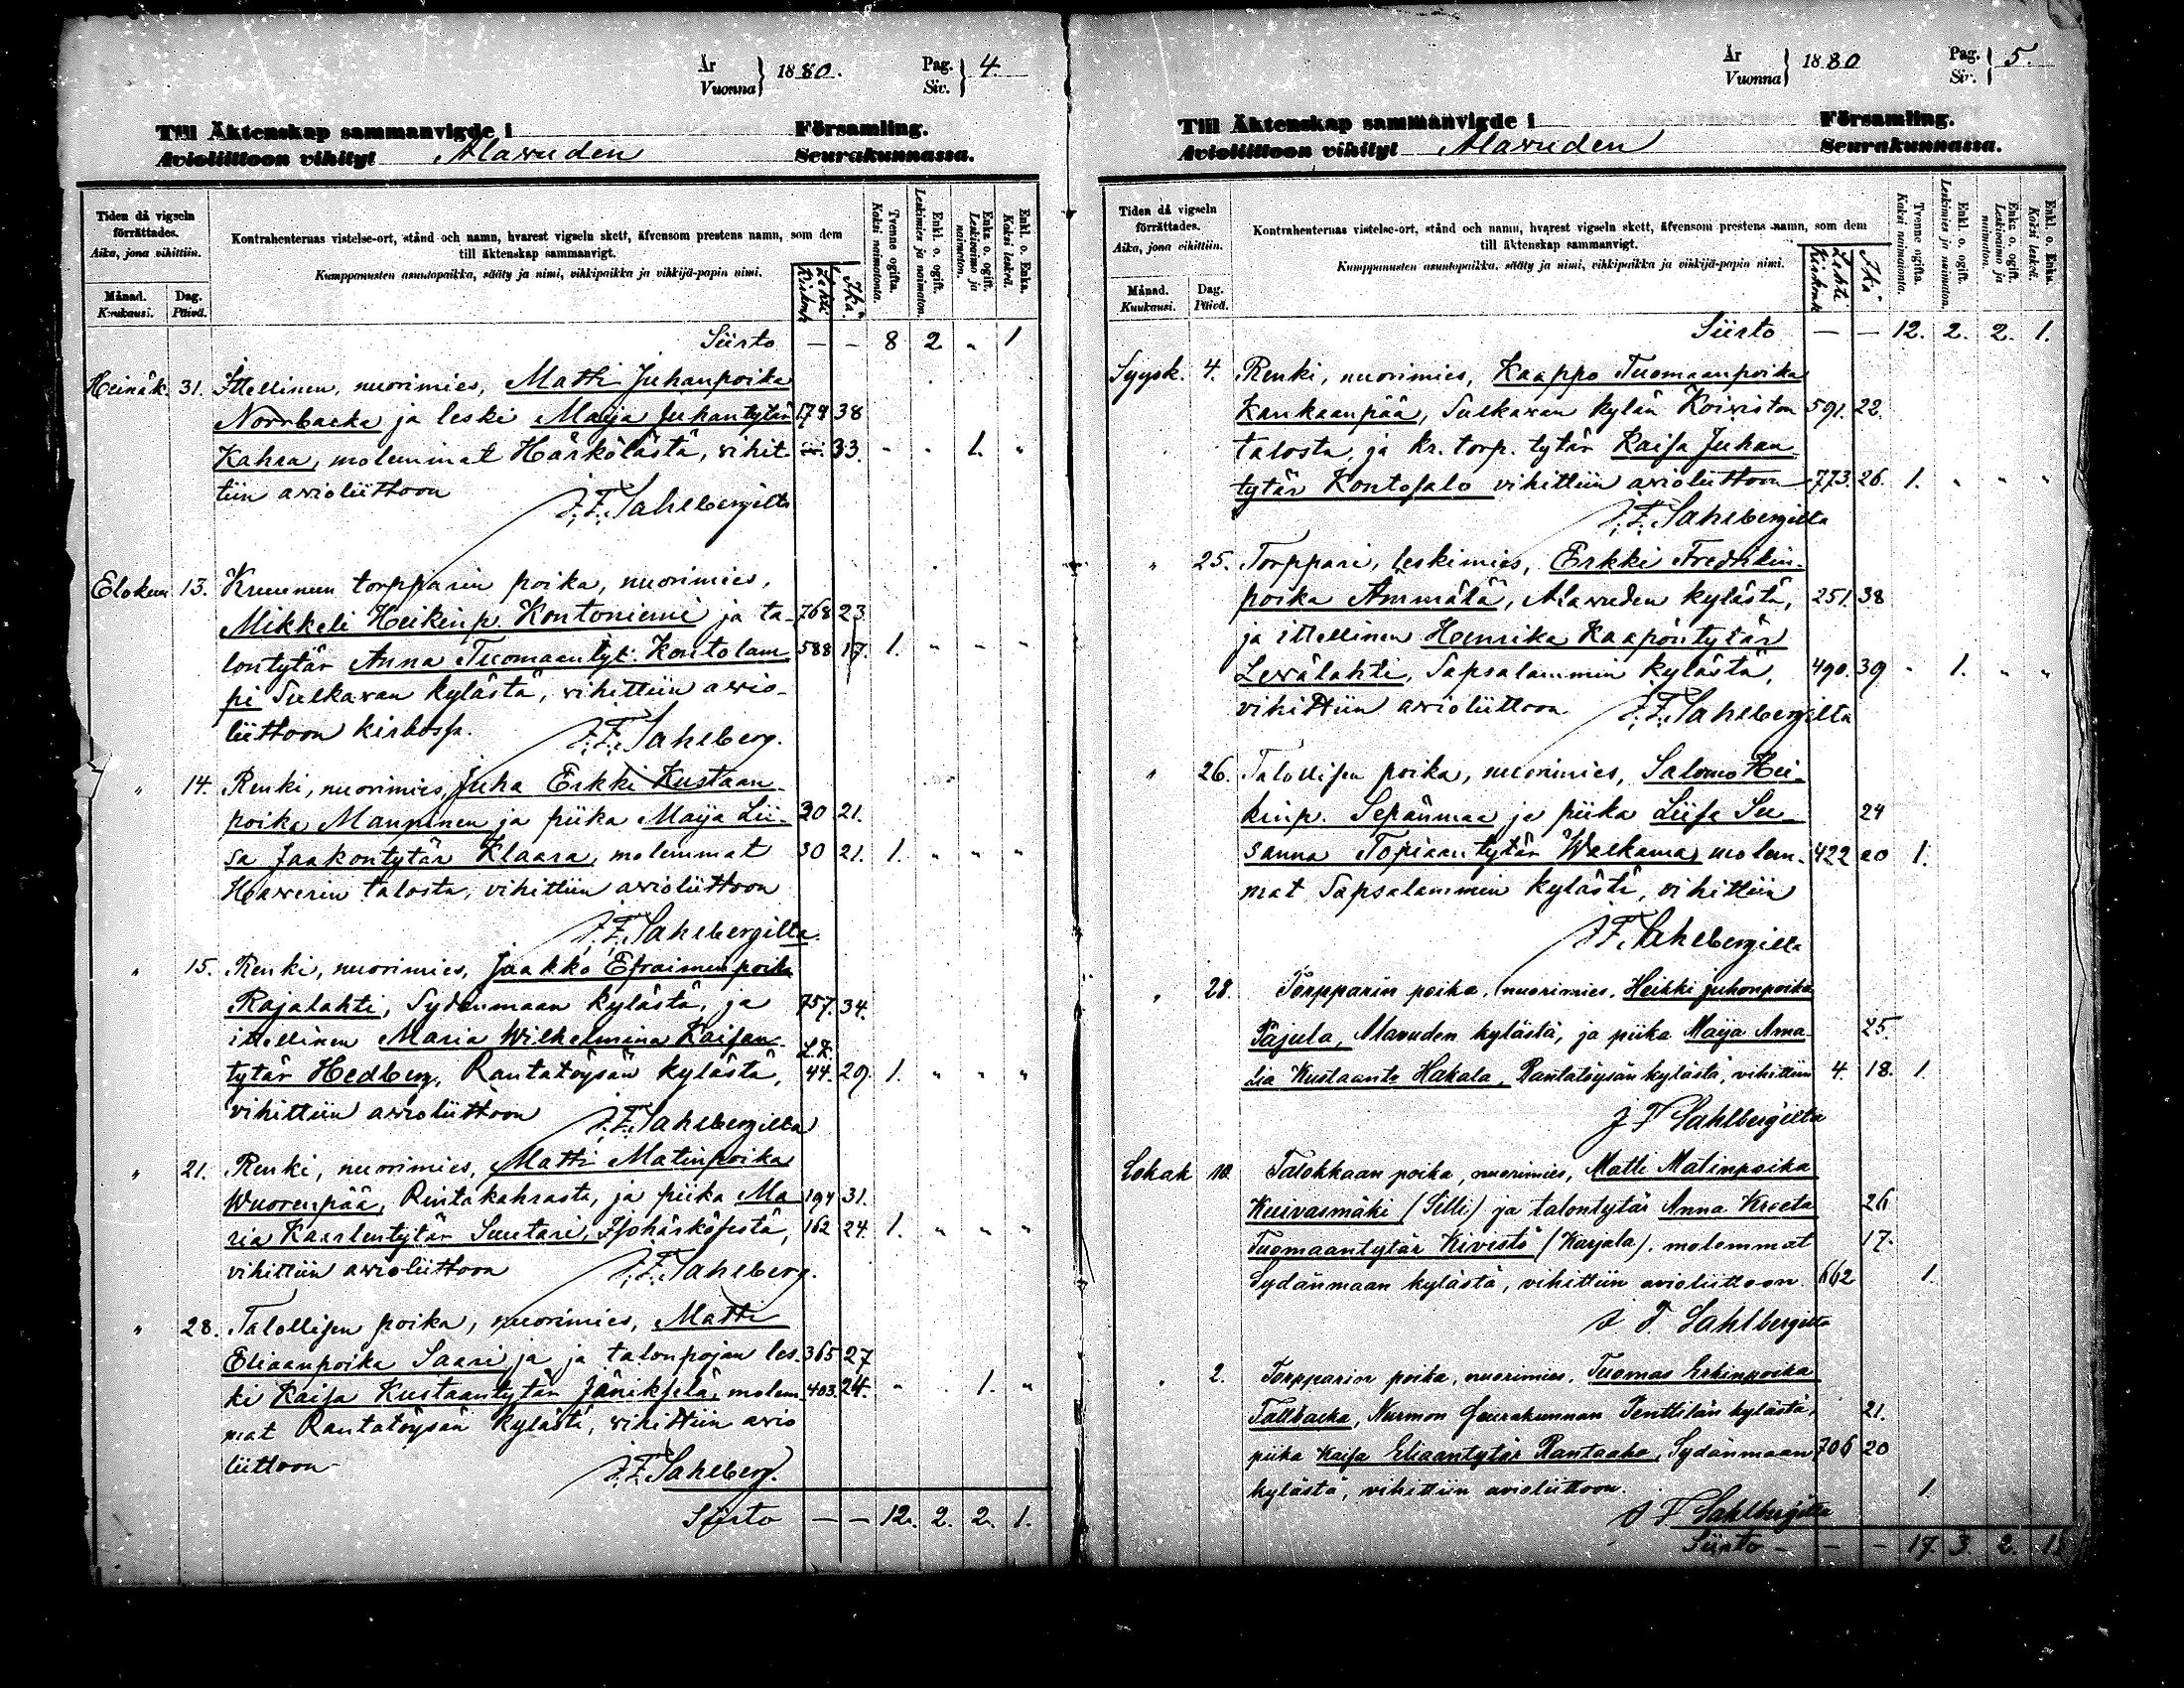 År
Vuonna } 1880.
Pag.
Siv. } 4.
Till Äktenskap sammanvigde i Församling.
Avioliittoon vihityt Alavuden Seurakunnassa.
Tiden då vigseln förrättades.
Aika, jona vihittiin.
Månad.
Kuukausi.
Dag.
Päivä.
Kontrahenternas vistelse-ort, stånd och namn, hvarest vigseln skett, äfvensom prestens namn, som dem
till äktenskap sammanvigt.
Kumppanusten asuntopaikka, sääty ja nimi, vihkipaikka ja vihkijä-papin nimi.
Kirkonk Lehti
Ikä.
Tvenne ogifta.
Kaksi naimatonta.
Enkl. o. ogift.
Leskimies ja naimaton.
Enka o. ogift.
Leskivaimo ja naimaton.
Enkl. o. Enka.
Kaksi leskeä.
Siirto — — 8 2 „ 1
Heinäk. 31. Ittellinen, nuorimies, Matti Juhanpoika
Norrbacka ja leski Maija Juhantytär 178 38
Kahra, molemmat Härkölästä, vihit- 33. „ „ 1. „
tiin avioliittoon
J. F. Sahlbergilta
Elokuu 13. Kruunun torpparin poika, nuorimies,
Mikkeli Heikinp. Kontoniemi ja ta- 768 23
lontytär Anna Tuomaantyt. Kontolam- 588 17. 1. „ „ „
pi Sulkavan kylästä, vihittiin avio-
liittoon kirkossa.
J. F. Sahlberg.
„ 14. Renki, nuorimies, Juha Erkki Kustaan-
poika Manninen ja piika Maija Lii- 30 21.
sa Jaakontytär Klaara, molemmat 30 21. 1. „ „ „
Haverin talosta, vihittiin avioliittoon
J. F. Sahlbergilta.
„ 15. Renki, nuorimies, Jaakko Efraiminpoika
Rajalahti, Sydänmaan kylästä, ja 757. 34.
ittellinen Maria Wilhelmina Kaisan-
tytär Hedberg, Rantatöysän kylästä, 44. 29. 1. „ „ „
vihittiin avioliittoon
J. F. Sahlbergilta
„ 21. Renki, nuorimies, Matti Matinpoika
Wuorenpää, Rintakahrasta, ja piika Ma- 194 31.
ria Kaarlentytär Suutari, 162 24. 1. „ „ „
vihittiin avioliittoon
J. F. Sahlberg.
„ 28. Talollisen poika, nuorimies, Matti
Eliaanpoika Saari ja ja talonpojan les- 365 27
ki Kaisa Kustaantytär Jänikselä, molem- 403. 24. „ „ 1. „
mat Rantatöysän kylästä, vihittiin avio
liittoon
J. F. Sahlberg.
Siirto — — 12. 2. 2. 1.
År
Vuonna } 1880
Pag.
Siv. } 5.
Till Äktenskap sammanvigde i Församling.
Avioliittoon vihityt Alavuden Seurakunnassa.
Tiden då vigseln förrättades.
Aika, jona vihittiin.
Månad.
Kuukausi.
Dag.
Päivä.
Kontrahenternas vistelse-ort, stånd och namn, hvarest vigseln skett, äfvensom prestens namn, som dem
till äktenskap sammanvigt.
Kumppanusten asuntopaikka, sääty ja nimi, vihkipaikka ja vihkijä-papin nimi.
Kirkonk Lehti
Ikä
Tvenne ogifta.
Kaksi naimatonta.
Enkl. o. ogift.
Leskimies ja naimaton.
Enka o. ogift.
Leskivaimo ja naimaton.
Enkl. o. Enka.
Kaksi leskeä.
Siirto — — 12. 2. 2. 1.
Syysk. 4. Renki, nuorimies, Kaappo Tuomaanpoika
Kankaanpää, Sulkavan kylän Koiviston 591. 22.
talosta, ja kr. torp. tytär Kaisa Juhan-
tytär Kontosalo vihittiin avioliittoon 773. 26. 1. „ „ „
J. F. Sahlbergilta
„ 25. Torppari, leskimies, Erkki Fredrikin-
poika Ämmälä, Alavuden kylästä, 251. 38
ja ittellinen Henrika Kaapontytär
Levälahti, Sapsalammin kylästä, 490. 39 „ 1. „ „
vihittiin avioliittoon
J. F. Sahlbergilta
„ 26. Talollisen poika, nuorimies, Salomo Hei-
kinp. Sepänmaa ja piika Liisa Su- 24
sanna Topiaantytär Walkama, molem- 422 20 1.
mat Sapsalammin kylästä, vihittiin
J. F. Sahlbergilta
„ 28. Torpparin poika, nuorimies, Heikki Juhonpoika
Pajula, Alavuden kylästä, ja piika Maija Ama- 25.
lia Kustaant. Hakala, Rantatöysän kylästä, vihittiin 4. 18. 1.
J F Sahlbergilta
Lokak 10. Talokkaan poika, nuorimies, Matti Matinpoika
Kuivasmäki (Silli) ja talontytär Anna Kreeta 26
Tuomaantytär Kivistö (Karjala), molemmat 17.
Sydänmaan kylästä, vihittiin avioliittoon. 662 1.
J F. Sahlbergilta
„ 2. Torpparin poika, nuorimies, Tuomas Erkinpoika
Tallbacka, Nurmon Seurakunnan Penttilän kylästä, 21.
piika Kaisa Eliaantytär Rantaaho, Sydänmaan 706 20
kylästä, vihittiin avioliittoon. 1.
J F Sahlbergilta
Siirto — — — 17. 3. 2. 1.